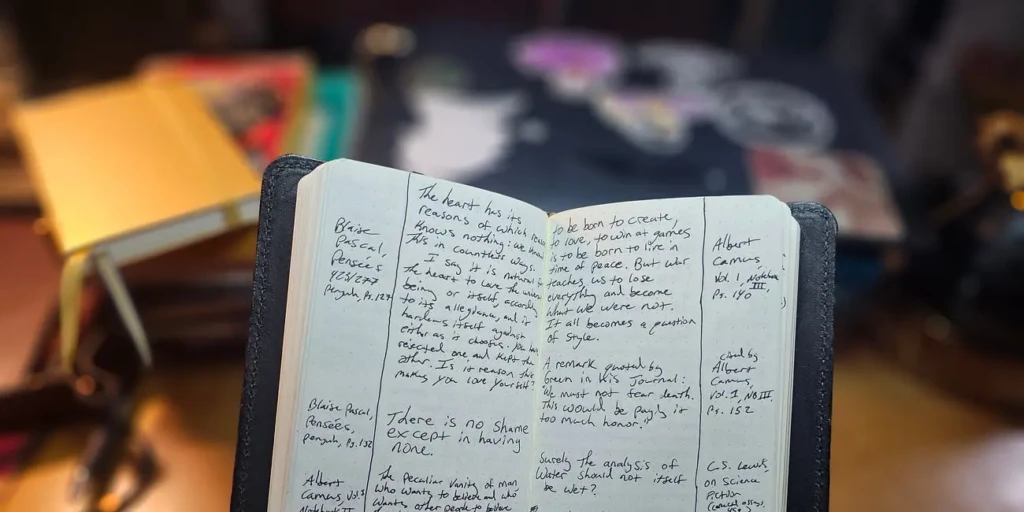 Blaise
Pascal,
Pensées
423/277
Penguin, Pg. 127
The heart has its
reasons of which reason
knows nothing: we know
this in countless ways.
I say it is natural
the heart to love the
being or itself, accord
to its allegiance, and it
hardens itself against
either as it chooses. You have
rejected one and kept the
other. Is it reason that
makes you love yourself?
Blaise Pascal,
Pensées,
Penguin, Pg. 132
There is no shame
except in having
none.
Albert
Camus, Vol. 1
Notebook II
The peculiar vanity of man
who wants to believe and who
wants other people to believe
to be born to create,
to love, to win at games
is to be born to live in
time of peace. But war
teaches us to lose
everything and become
what we were not.
It all becomes a question
of style.
Albert
Camus
Vol. 1, Notebook
III,
Pg. 140
A remark quoted by
Green in his Journal:
"We must not fear death.
This would be paying it
too much honor."
cited by
Albert
Camus,
Vol. I, NB III,
Pg. 152
Surely the analysis of
Water should not itself
be wet?
C.S. Lewis,
on Science
Fiction